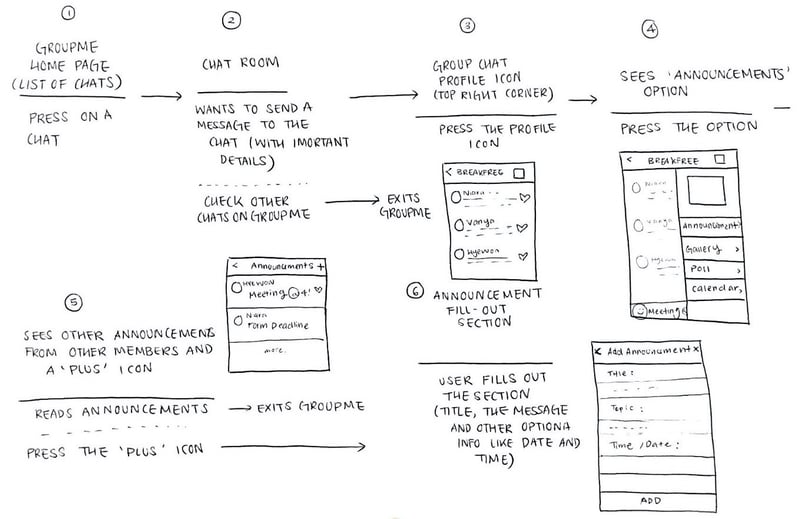 1
GROUPME
HOME PAGE
(LIST OF CHATS)
PRESS ON A
CHAT
2
CHAT ROOM
WANTS TO SEND A
MESSAGE TO THE
CHAT (WITH IMORTANT
DETAILS)
CHECK OTHER
CHATS ON GROUPME
EXITS
GROUPME
3
GROUP CHAT
PROFILE ICON
(TOP RIGHT CORNER)
PRESS THE PROFILE
ICON
< BREAKFREE
Niara
Vanya
Hyewon
4
SEES 'ANNOUNCEMENTS'
OPTION
PRESS THE OPTION
< BREAKFREE
Niara
Vanya
Hyewon
Announcment>
Gallery >
Poll >
Calendar>
Meeting
5
SEES OTHER ANNOUNCEMENTS
FROM OTHER MEMBERS AND
A 'PLUS' ICON
READS ANNOUNCEMENTS
EXITS GROUPME
PRESS THE 'PLUS' ICON
< Announcments +
HYEWON
Meeting @ 4!
Niara
Form Deadline
more.
6
ANNOUNCEMENT
FILL-OUT
SECTION
USER FILLS OUT
THE SECTION
(TITLE, THE MESSAGE
AND OTHER OPTIONA
INFO LIKE DATE AND
TIME)
< Add Announcment X
Title :
Topic :
Time /Date :
ADD